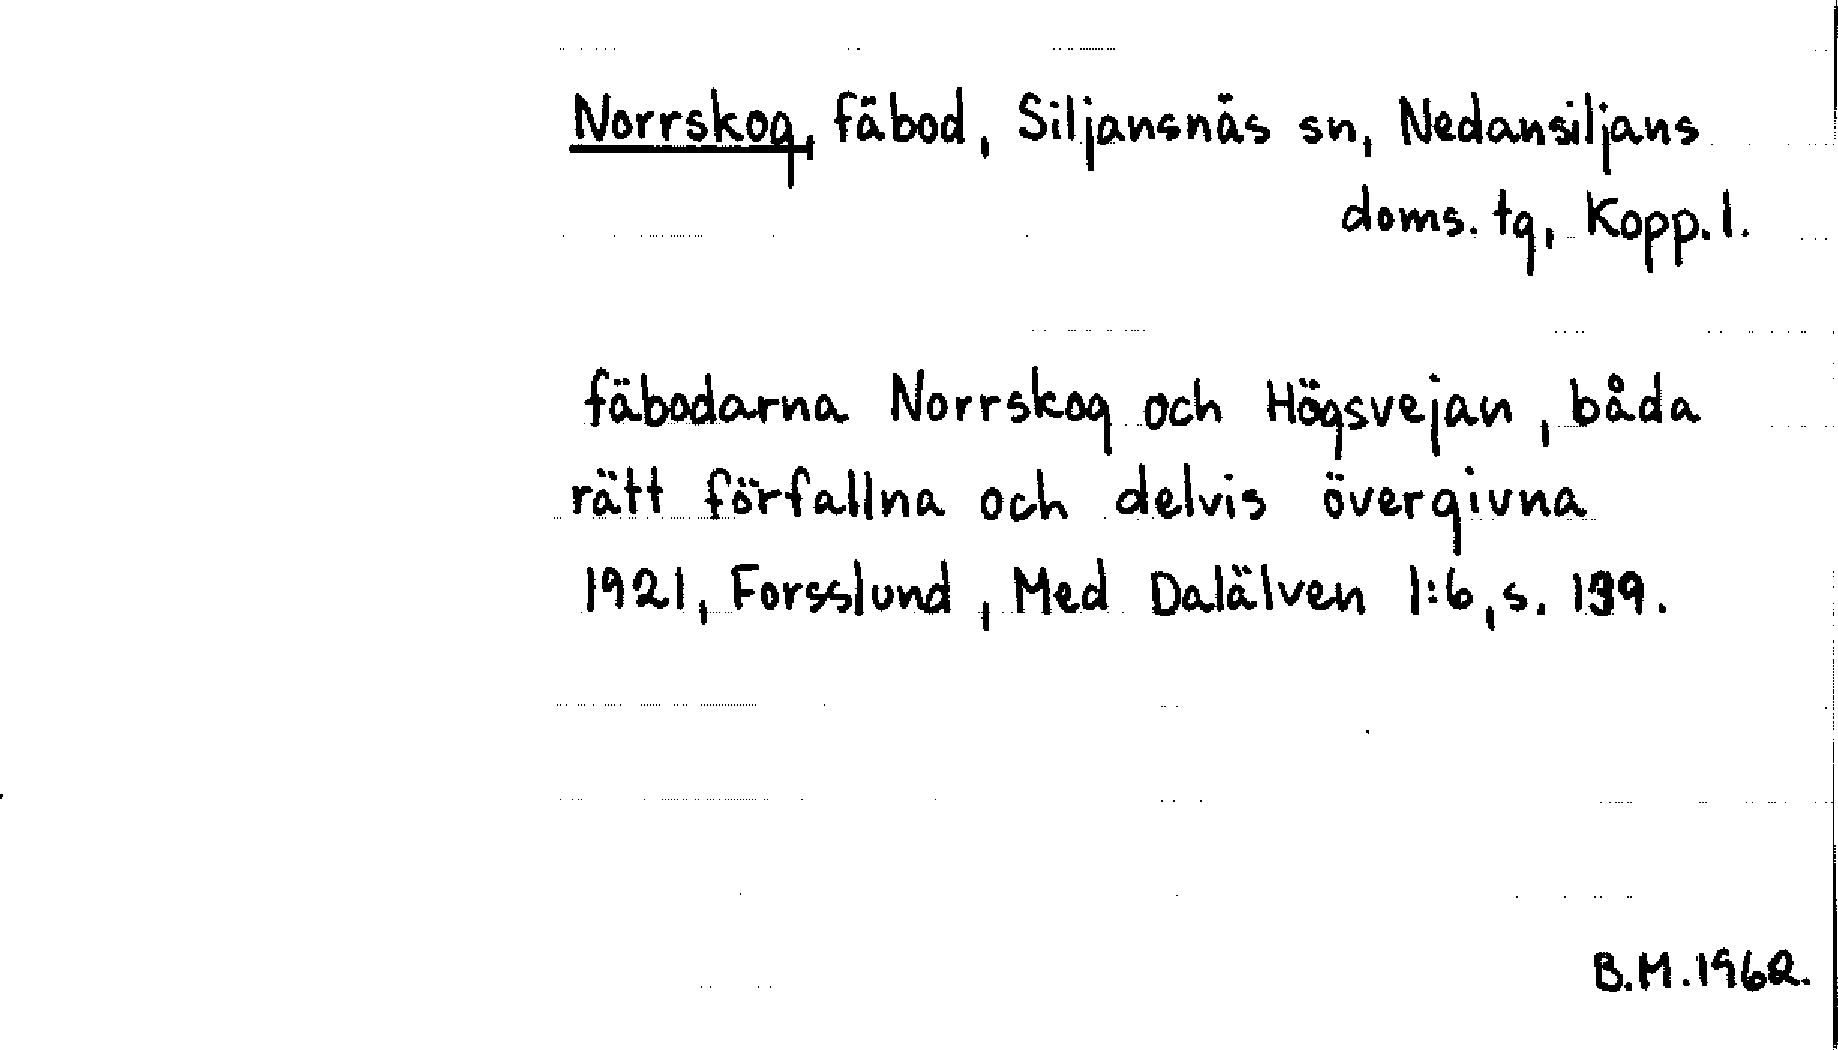 Norrskog, fäbod, Siljansnäs sn, Nedansiljans
doms. tg, Kopp. l.
fäbodarna Norrskog och Högsvejan, båda
rätt förfallna och delvis övergivna
1921, Forsslund, Med Dalälven 1:6, s. 139.
B.M. 1962.